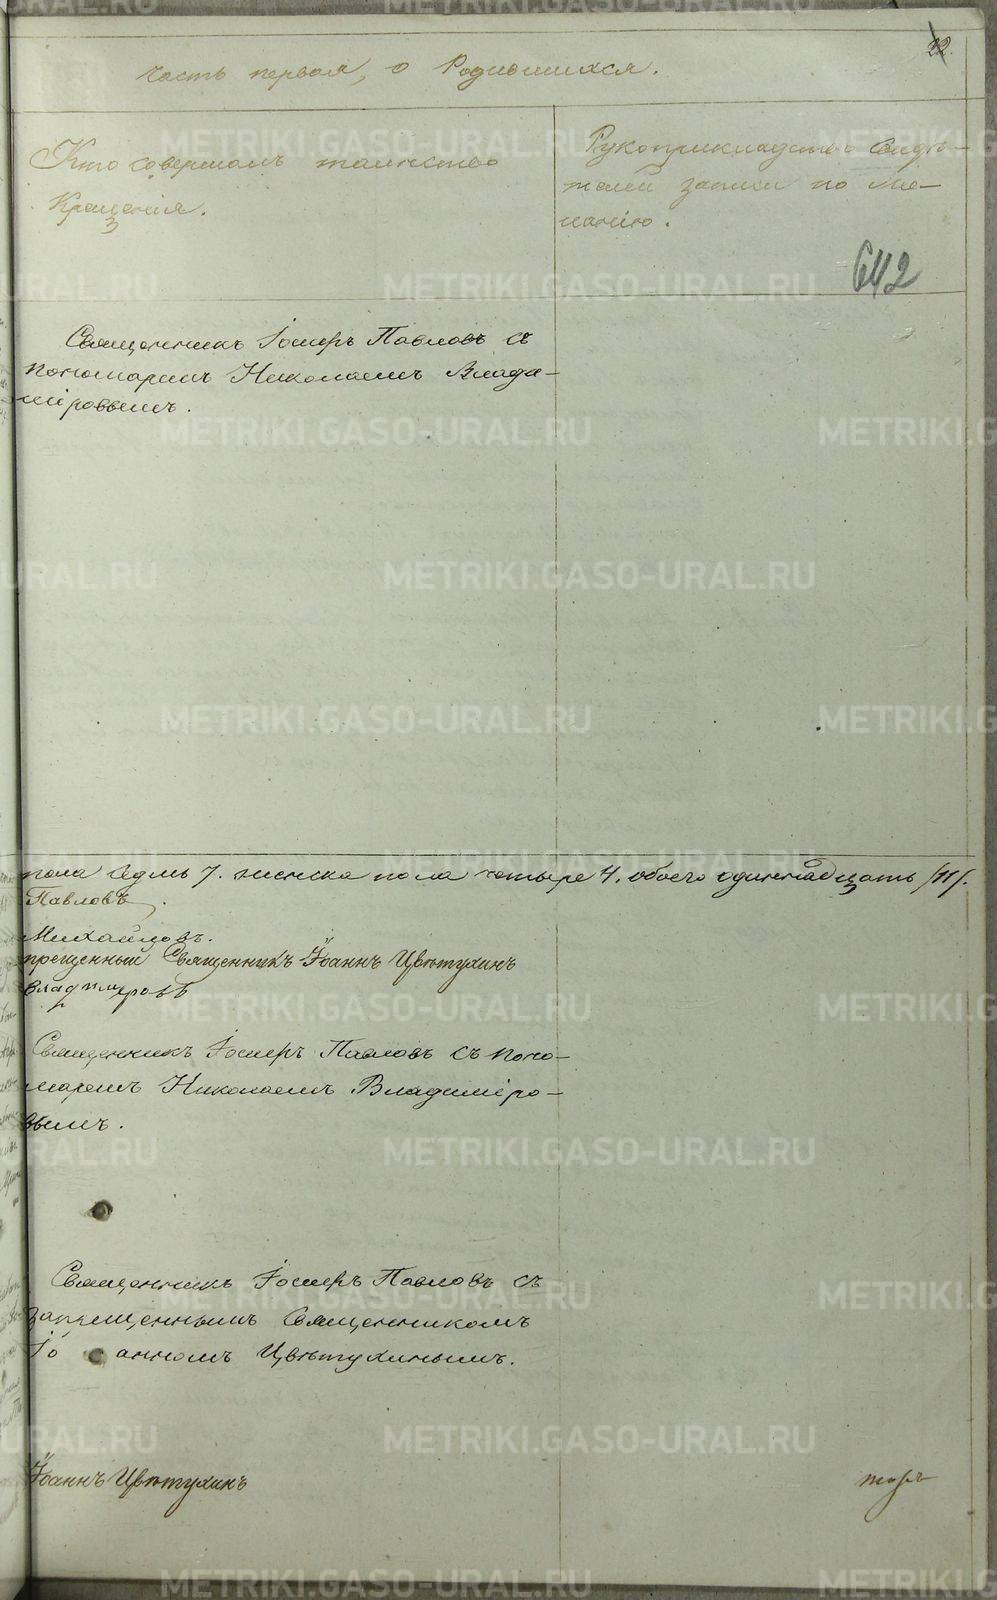 22.
Часть первая, о Родившихся.
Кто совершалъ таинство
Крещенія.
Рукоприкладство свидѣ-
телей записи по же-
ланію.
642
Священникъ Іосифъ Павловъ съ
пономаремъ Николаемъ Влади-
міровымъ.
пола седмь 7. женска пола четыре 4. обоего одиннадцать /11/.
Павловъ
Михайловъ.
прещенный Священникъ Іоаннъ Цвѣтухинъ
Владиміровъ
Священникъ Іосифъ Павловъ съ поно-
маремъ Николаемъ Владиміро-
вымъ.
Священникъ Іосифъ Павловъ съ
запрещеннымъ Священникомъ
Іоанномъ Цвѣтухинымъ.
Іоаннъ Цвѣтухинъ
METRIKI.GASO-URAL.RU